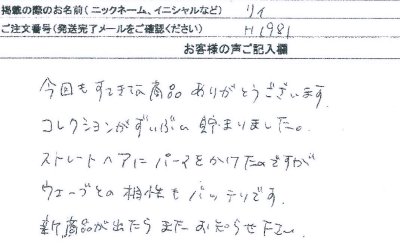 掲載の際のお名前(ニックネーム、イニシャルなど) リィ
ご注文番号(発送完了メールをご確認ください) H1981
お客様の声ご記入欄
今回もすてきな商品ありがとうございます
コレクションがずいぶん貯まりました。
ストレートヘアにパーマをかけたのですが
ウェーブとの相性もバッチリです。
新商品が出たらまたお知らせ